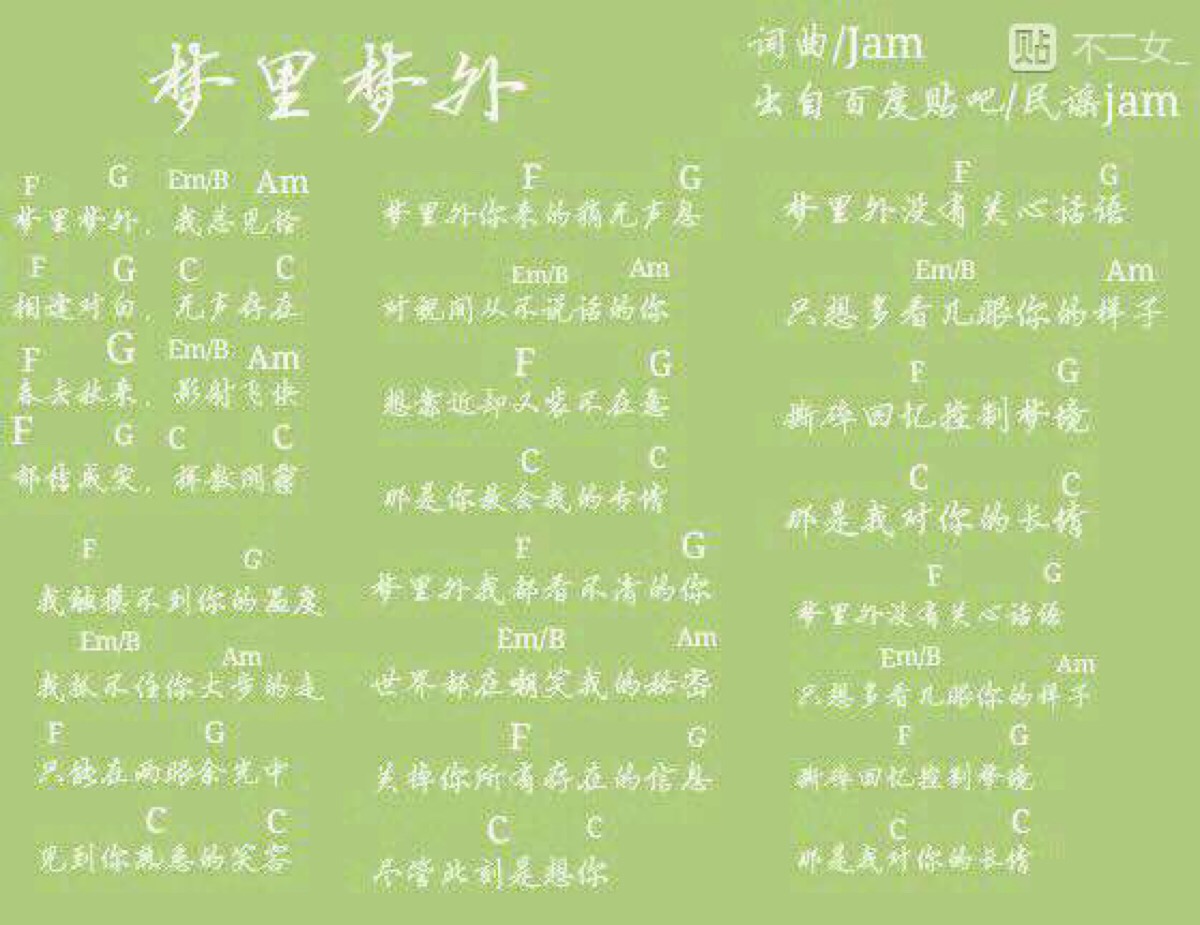 梦里梦外
词曲/Jam
贴 不二女_
出自百度贴吧/民谣jam
F G Em/B Am
梦里梦外，我总见恰
F G C C
相逢对白，无声存在
F G Em/B Am
春去秋来，影射飞快
F G C C
都信成实，拜数阴霾
F G
我触摸不到你的温度
Em/B Am
我抓不住你大步的走
F G
只能在两眼余光中
C C
见到你熟悉的笑容
F G
梦里外你来的稍无声息
Em/B Am
对视间从不说话的你
F G
想靠近却又装不在意
C C
那是你教会我的专情
F G
梦里外我都看不清的你
Em/B Am
世界都在嘲笑我的秘密
F G
关掉你所有存在的信息
C C
尽管此刻是想你
F G
梦里外没有关心话语
Em/B Am
只想多看几眼你的样子
F G
撕碎回忆控制梦境
C C
那是我对你的长情
F G
梦里外没有关心话语
Em/B Am
只想多看几眼你的样子
F G
撕碎回忆控制梦境
C C
那是我对你的长情